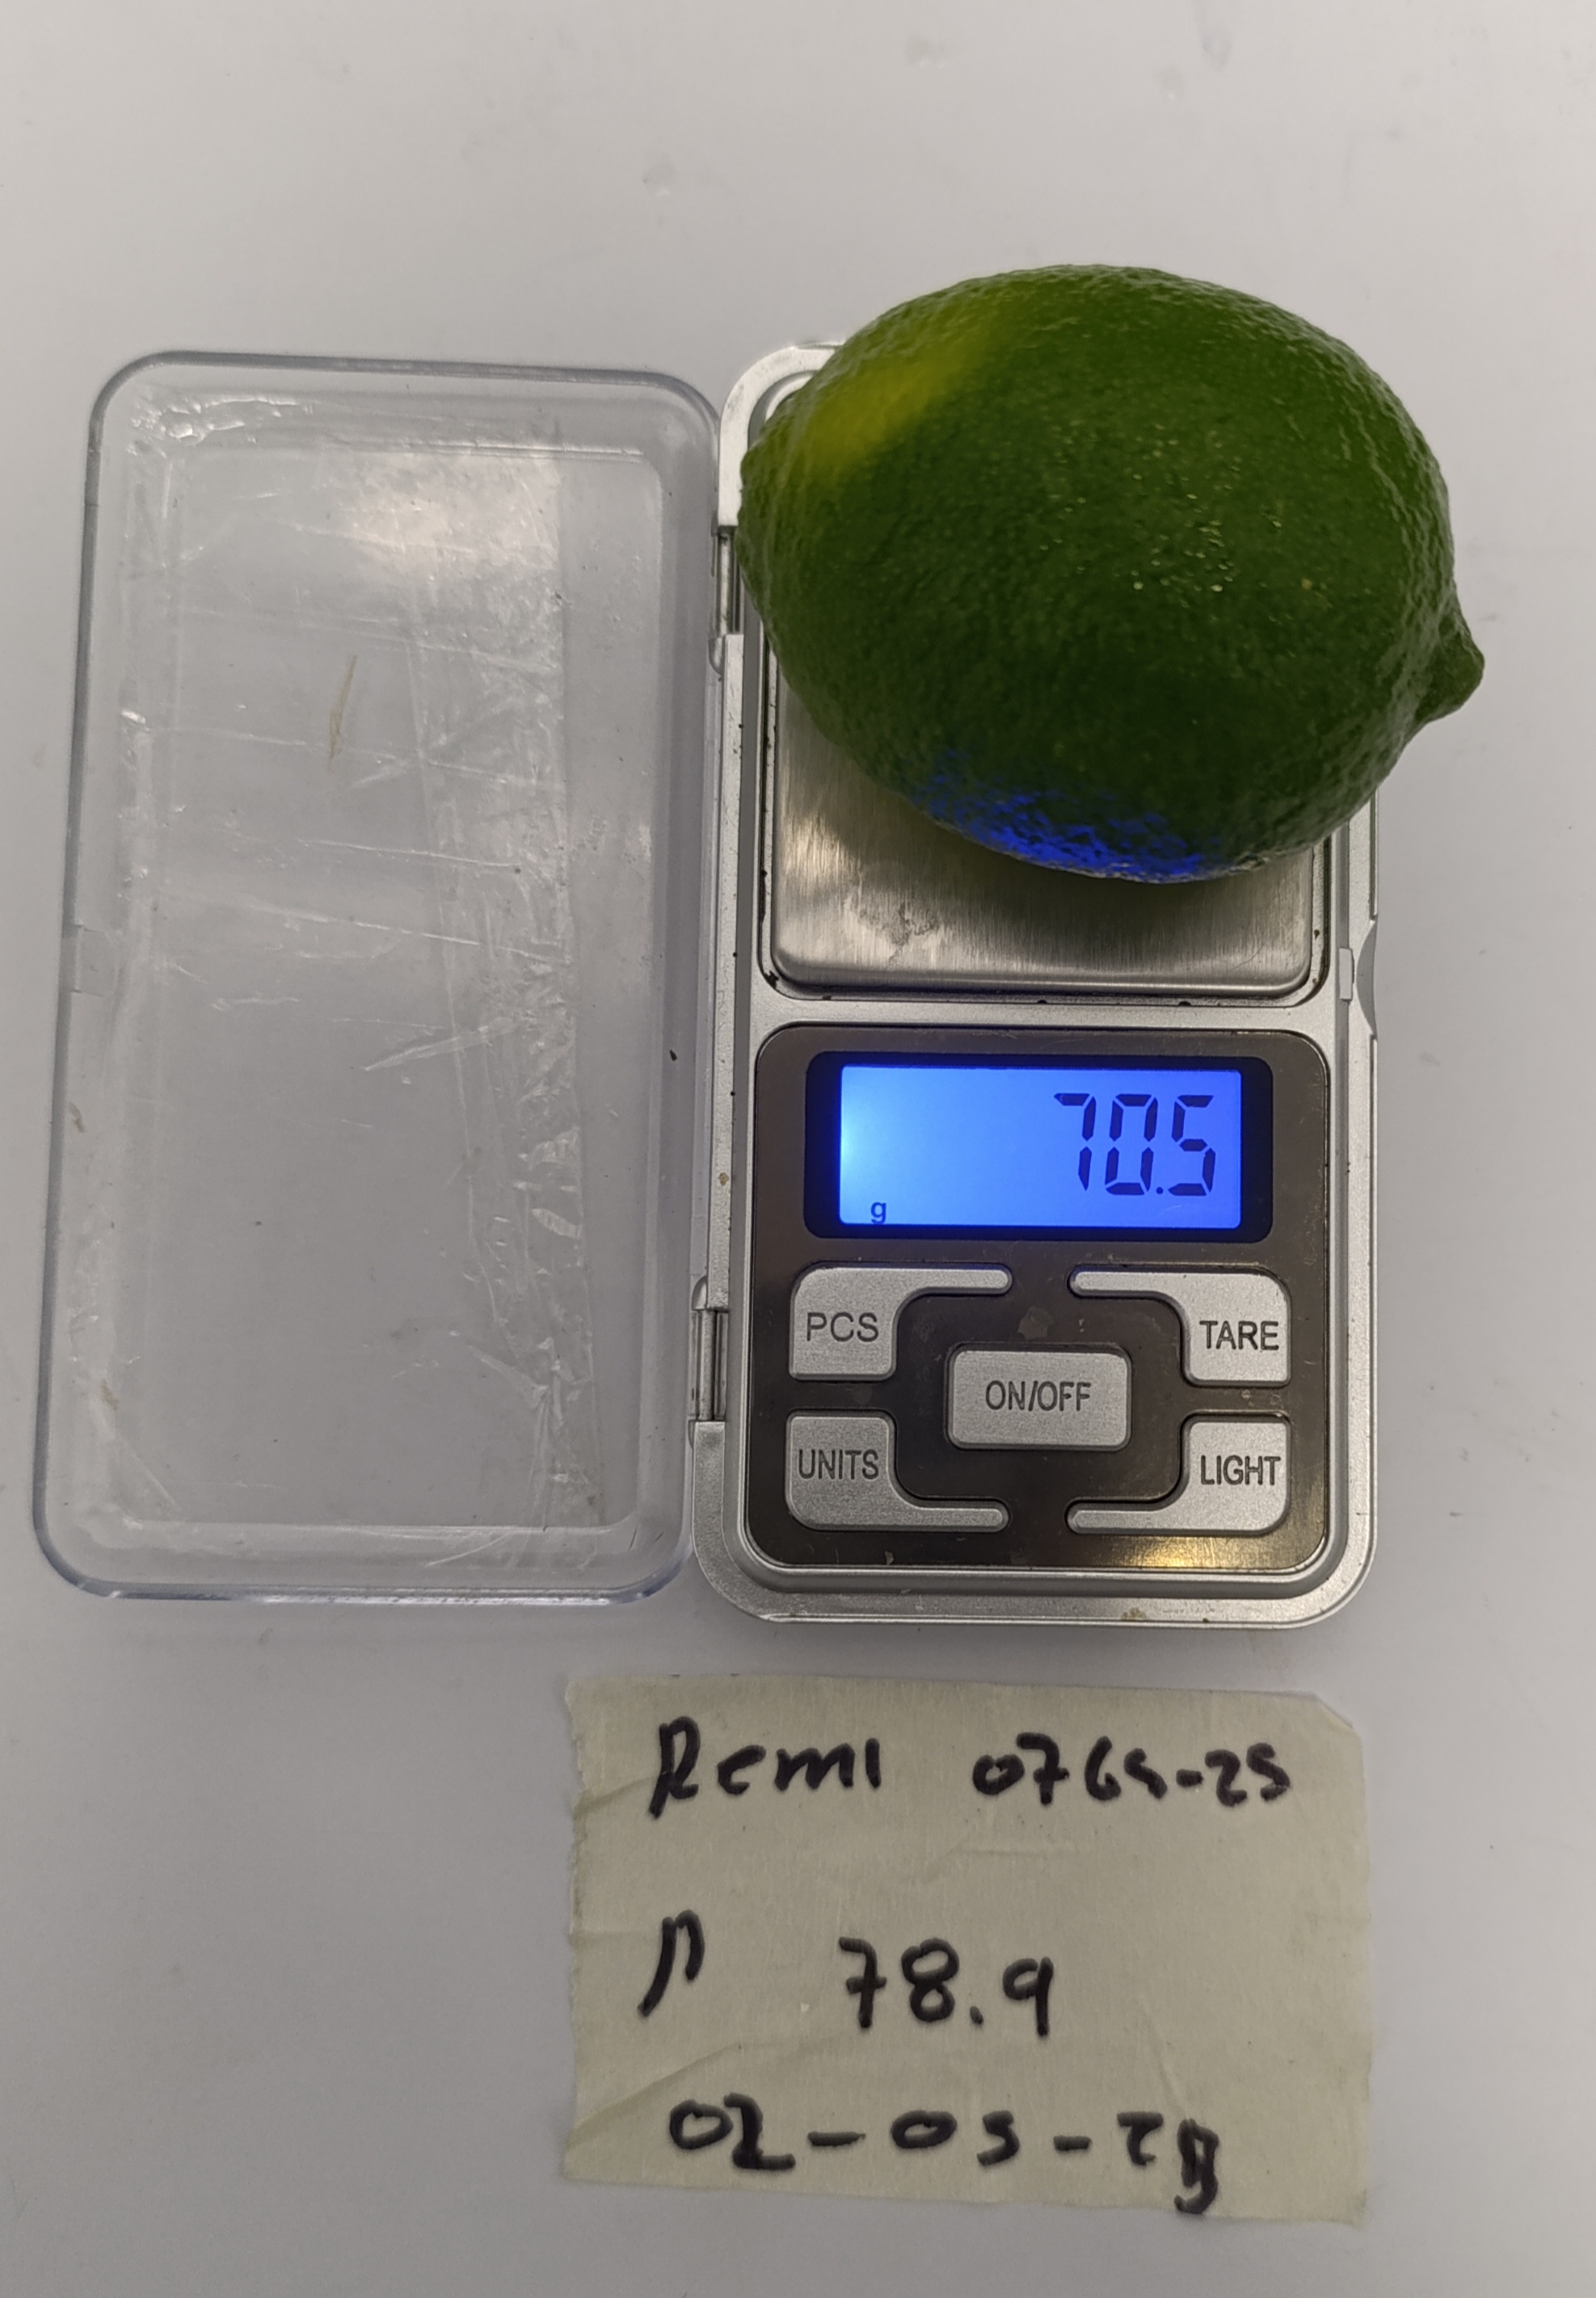 70.5
g
PCS
TARE
ON/OFF
UNITS
LIGHT
Remi 0765-25
P 78.9